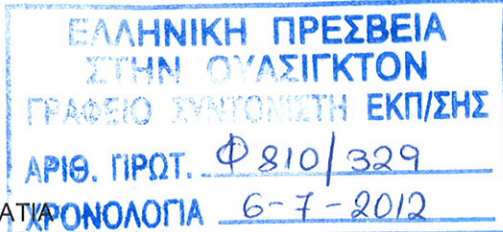 ΕΛΛΗΝΙΚΗ ΠΡΕΣΒΕΙΑ
ΣΤΗΝ ΟΥΑΣΙΓΚΤΟΝ
ΓΡΑΦΕΙΟ ΣΥΝΤΟΝΙΣΤΗ ΕΚΠ/ΣΗΣ
ΑΡΙΘ. ΠΡΩΤ. Φ 810/329
ΑΤΙΑ
ΧΡΟΝΟΛΟΓΙΑ 6-7-2012